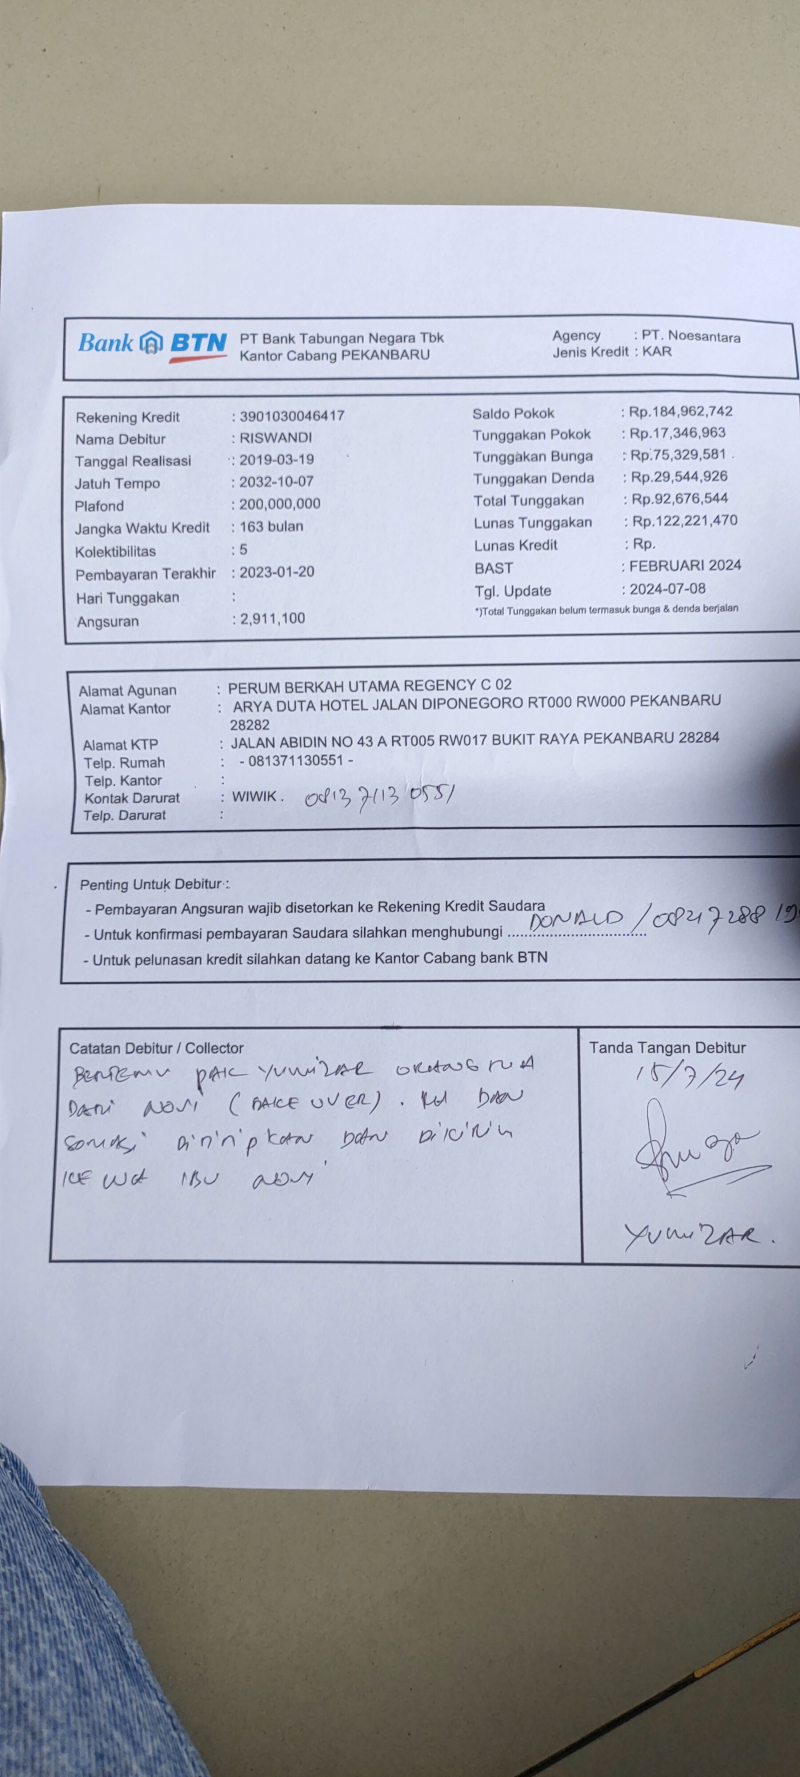 Bank BTN PT Bank Tabungan Negara Tbk
Kantor Cabang PEKANBARU
Agency : PT. Noesantara
Jenis Kredit : KAR
Rekening Kredit : 3901030046417
Nama Debitur : RISWANDI
Tanggal Realisasi : 2019-03-19
Jatuh Tempo : 2032-10-07
Plafond : 200,000,000
Jangka Waktu Kredit : 163 bulan
Kolektibilitas : 5
Pembayaran Terakhir : 2023-01-20
Hari Tunggakan :
Angsuran : 2,911,100
Saldo Pokok : Rp.184,962,742
Tunggakan Pokok : Rp.17,346,963
Tunggakan Bunga : Rp.75,329,581
Tunggakan Denda : Rp.29,544,926
Total Tunggakan : Rp.92,676,544
Lunas Tunggakan : Rp.122,221,470
Lunas Kredit : Rp.
BAST : FEBRUARI 2024
Tgl. Update : 2024-07-08
*)Total Tunggakan belum termasuk bunga & denda berjalan
Alamat Agunan : PERUM BERKAH UTAMA REGENCY C 02
Alamat Kantor : ARYA DUTA HOTEL JALAN DIPONEGORO RT000 RW000 PEKANBARU
28282
Alamat KTP : JALAN ABIDIN NO 43 A RT005 RW017 BUKIT RAYA PEKANBARU 28284
Telp. Rumah : - 081371130551 -
Telp. Kantor :
Kontak Darurat : WIWIK . 081371130551
Telp. Darurat :
Penting Untuk Debitur :
- Pembayaran Angsuran wajib disetorkan ke Rekening Kredit Saudara
- Untuk konfirmasi pembayaran Saudara silahkan menghubungi DONALD /
- Untuk pelunasan kredit silahkan datang ke Kantor Cabang bank BTN
Catatan Debitur / Collector
BERTEMU PAK YUNIZAR ORANG TUA
DARI NOVI (TAKE OVER). DAN
SOMASI DITITIPKAN DAN DIKIRIM
KE WA IBU NOVI
Tanda Tangan Debitur
15/7/24
YUNIZAR.